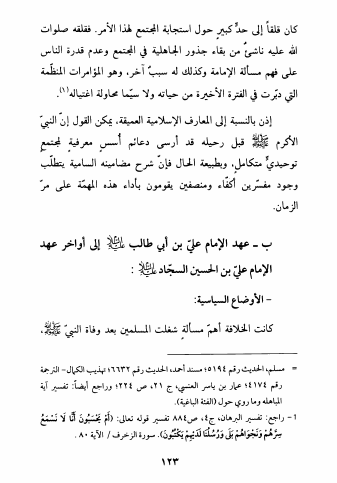 كان قلقاً إلى حدٍّ كبير حول استجابة المجتمع لهذا الأمر. فقلقه صلوات
الله عليه ناشئٌ من بقاء جذور الجاهلية في المجتمع وعدم قدرة الناس
على فهم مسألة الإمامة وكذلك له سببٌ آخر، وهو المؤامرات المنظّمة
التي دبّرت في الفترة الأخيرة من حياته ولا سيّما محاولة اغتياله(١).
إذن بالنسبة إلى المعارف الإسلامية العميقة، يمكن القول إنّ النبيّ
الأكرم ﷺ قبل رحيله قد أرسى دعائم أُسس معرفية لمجتمع
توحيديٍّ متكاملٍ، وبطبيعة الحال فإنّ شرح مضامينه السامية يتطلّب
وجود مفسّرين أكفّاء ومنصفين يقومون بأداء هذه المهمّة على مرّ
الزمان.
ب ـ عهد الإمام عليّ بن أبي طالب عليه السلام إلى أواخر عهد
الإمام عليّ بن الحسين السجّاد عليه السلام :
- الأوضاع السياسية:
كانت الخلافة أهمّ مسألةٍ شغلت المسلمين بعد وفاة النبيّ ﷺ،
= مسلم، الحديث رقم ٥١٩٤؛ مسند أحمد، الحديث رقم ٦٦٣٢؛ تهذيب الكمال - الترجمة
رقم ٤١٧٤؛ عمار بن ياسر العنسي، ج ٢١، ص ٢٢٤؛ وراجع أيضاً: تفسير آية
المباهله وما روي حول (الفئة الباغية).
١ - راجع: تفسير البرهان، ج٤، ص٨٨٤ تفسير قوله تعالى: ﴿أَمْ يَحْسَبُونَ أَنَّا لَا نَسْمَعُ
سِرَّهُمْ وَنَجْوَاهُمْ بَلَى وَرُسُلُنَا لَدَيْهِمْ يَكْتُبُونَ﴾. سورة الزخرف / الآية ٨٠ .
١٢٣